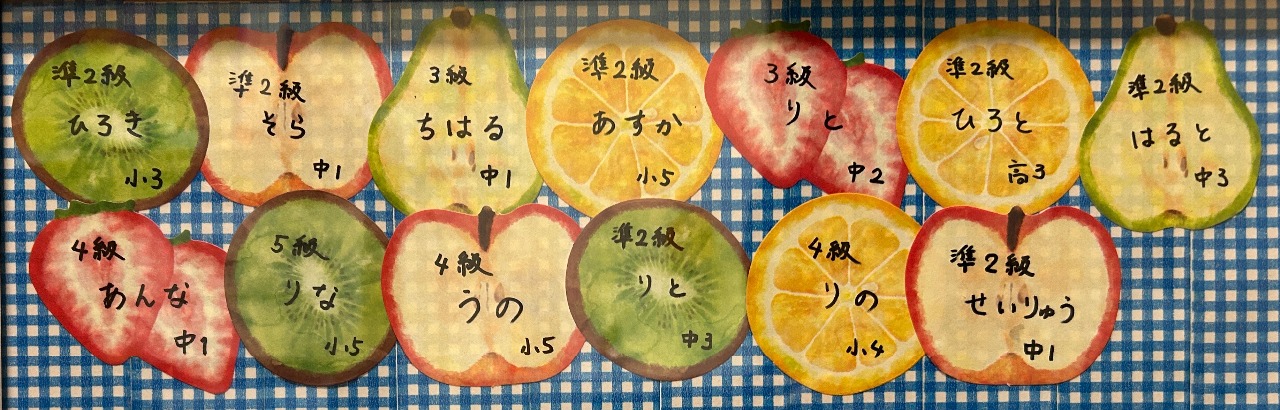 準2級
ひろき
小3
準2級
そら
中1
3級
ちはる
中1
準2級
あすか
小5
3級
りと
中2
準2級
ひろと
高3
準2級
はると
中3
4級
あんな
中1
5級
りな
小5
4級
うの
小5
準2級
りと
中3
4級
りの
小4
準2級
せいりゅう
中1